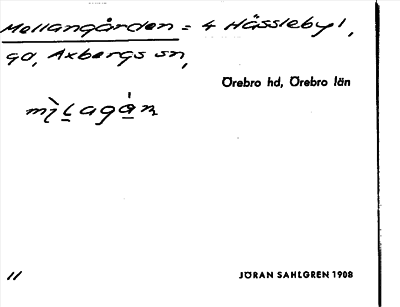 Mellangården = 4 Hässleby 1,
gd, Axbergs sn,
Örebro hd, Örebro län
11
JÖRAN SAHLGREN 1908